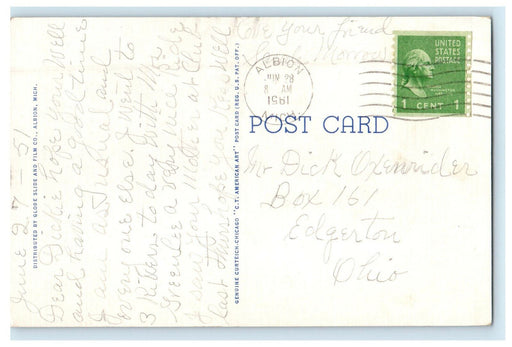 June 27 - 51
Dear Dickie hope your well
and having a good time
I am as usual and
every one else. I went to
3 Rivers to day with Mrs
Greenlee a very nice ride
I saw your Mother at Church
last
you feel well
Love your friend
Morrow
DISTRIBUTED BY GLOBE SLIDE AND FILM CO., ALBION, MICH.
GENUINE CURTEICH-CHICAGO "C.T. AMERICAN ART" POST CARD (REG. U.S. PAT. OFF.)
ALBION
JUN 28
8 AM
1951
MICH.
UNITED
STATES
POSTAGE
1 CENT 1
POST CARD
Mr Dick Oxenrider
Box 161
Edgerton
Ohio